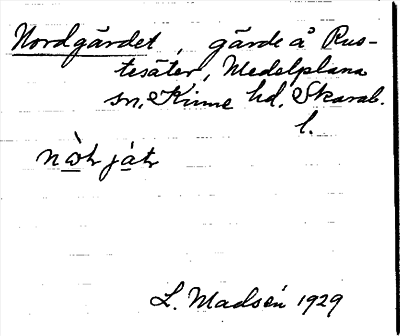 Nordgärdet, gärde å Rus-
tesäter, Medelplana
sn, Kinne hd, Skarab.
l.
L. Madsén 1929